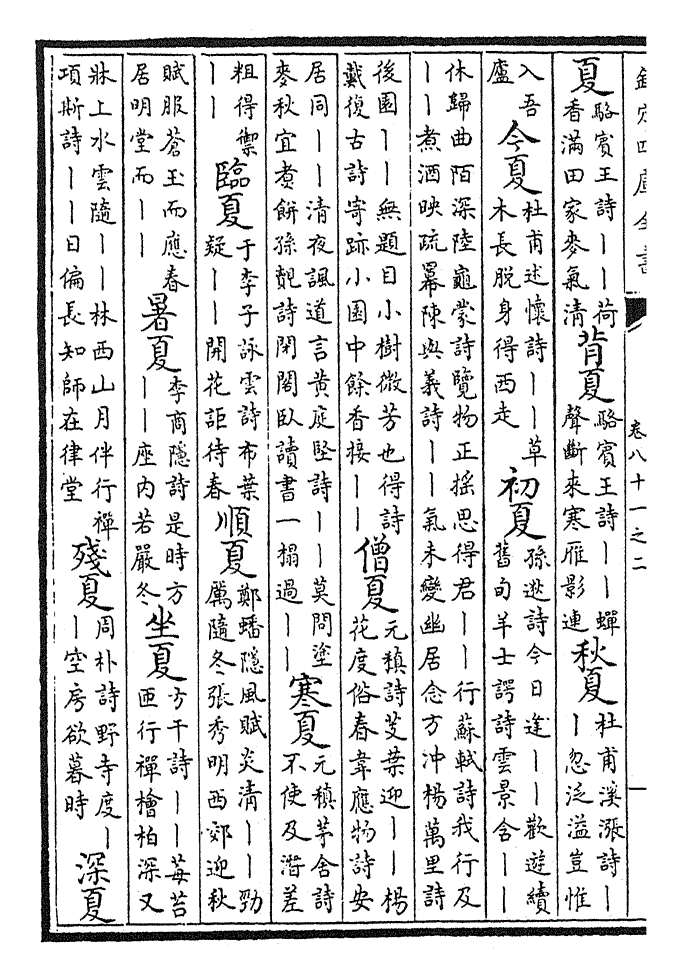 欽定四庫全書 卷八十一之二 一
夏 駱賓王詩丨丨荷香滿田家麥氣清 背夏 駱賓王詩丨丨蟬聲斷來寒雁影連 秋夏 杜甫溪漲詩丨丨忽泛溢豈惟
入吾廬 今夏 杜甫述懷詩丨丨草木長脫身得西走 初夏 孫逖詩今日逢丨丨歡遊續舊旬羊士諤詩雲景含丨丨
休歸曲陌深陸龜蒙詩覽物正搖思得君丨丨行蘇軾詩我行及
丨丨煮酒映疏羃陳與義詩丨丨氣未變幽居念方沖楊萬里詩
後園丨丨無題目小樹微芳也得詩戴復古詩寄跡小園中餘香接丨丨 僧夏 元稹詩芰葉迎丨丨楊花度俗春韋應物詩安
居同丨丨清夜諷道言黃庭堅詩丨丨莫問塗麥秋宜煮餅孫覿詩閉閣臥讀書一榻過丨丨 寒夏 元稹茅舍詩不使及潛差
粗得禦丨丨 臨夏 于李子詠雲詩布葉疑丨丨開花詎待春 順夏 鄭蟠隱風賦炎清丨丨勁厲隨冬張秀明西郊迎秋
賦服蒼玉而應春居明堂而丨丨 暑夏 李商隱詩是時方丨丨座內若嚴冬 坐夏 方干詩丨丨莓苔匝行禪檜柏深又
牀上水雲隨丨丨林西山月伴行禪項斯詩丨丨日偏長知師在律堂 殘夏 周朴詩野寺度丨丨空房欲暮時 深夏